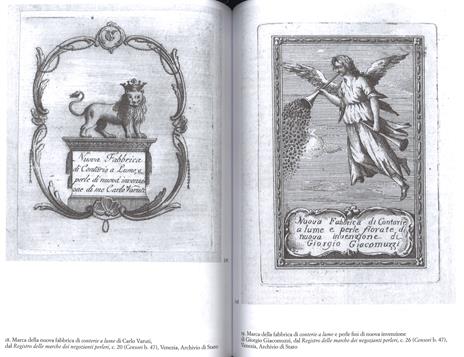 Nuova Fabbrica
di Contarie a Lume, e
perle di nuova invenzi
one di me Carlo Varuti
18
18. Marca della nuova fabbrica di conterie a lume di Carlo Varuti,
dal Registro delle marche dei negozianti perleri, c. 20 (Censori b. 47), Venezia, Archivio di Stato
Nuova Fabbrica di Contarie
a lume e perle fiorate di
nuova invenzione di
Giorgio Giacomuzzi
19. Marca della fabbrica di conterie a lume e perle fini di nuova invenzione
di Giorgio Giacomuzzi, dal Registro delle marche dei negozianti perleri, c. 26 (Censori b. 47),
Venezia, Archivio di Stato